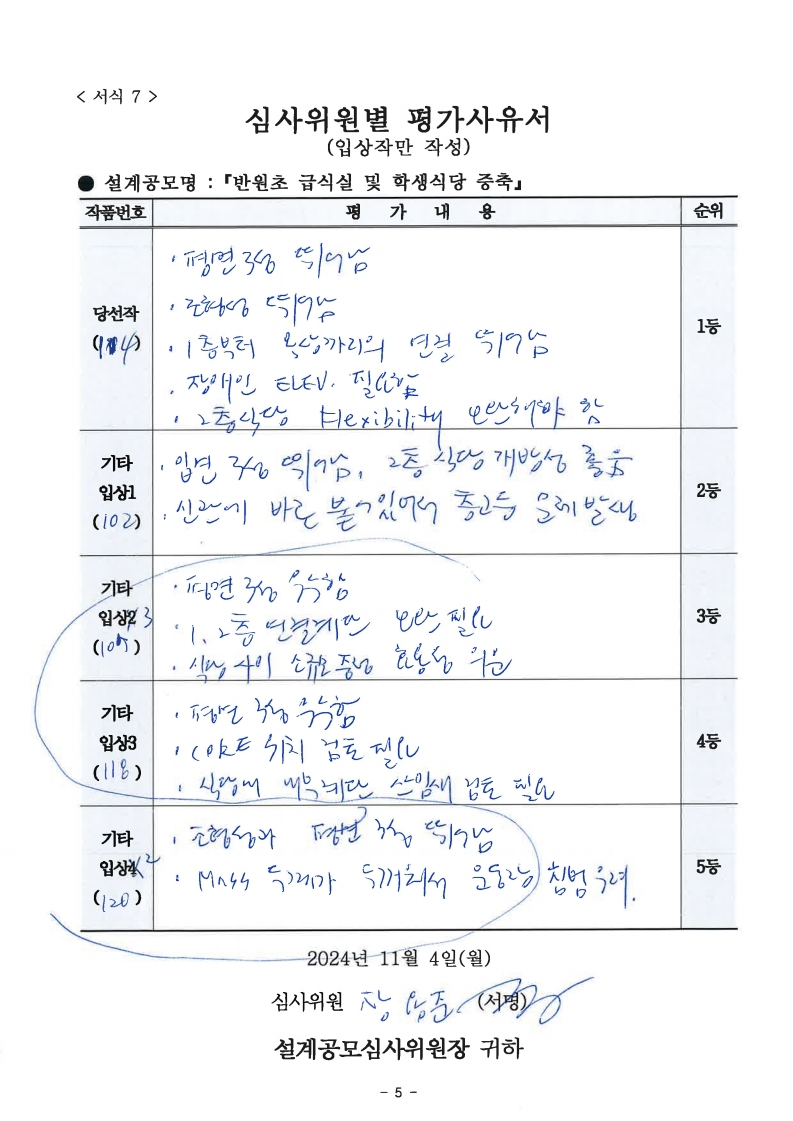 < 서식 7 >
심사위원별 평가사유서
(입상작만 작성)
● 설계공모명 : 『반원초 급식실 및 학생식당 증축』
작품번호 평 가 내 용 순위
당선작
(114)
· 평면 구성 뛰어남
· 조형성 뛰어남
· 1층부터 옥상까지의 연결 뛰어남
· 장애인 ELEV. 필요함
· 2층식당 Flexibility 보완해야 함
1등
기타
입상1
(102)
· 입면 구성 뛰어남, 2층 식당 개방성 좋음
· 신관에 바로 붙어있어서 층고등 문제발생
2등
기타
입상2 3
· 평면 구성 우수함
· 1, 2층 연결계단 보완 필요
· 식당 사이 소규모중정 효용성 의문
3등
기타
입상3
(118)
· 평면 구성 우수함
· CORE 위치 검토 필요
· 식당내 내부계단 쓰임새 검토 필요
4등
기타
입상4 2
(120)
· 조형성과 평면 구성 뛰어남
· MASS 두께가 두꺼워서 운동장 침범 우려.
5등
2024년 11월 4일(월)
심사위원 장 (서명)
설계공모심사위원장 귀하
- 5 -